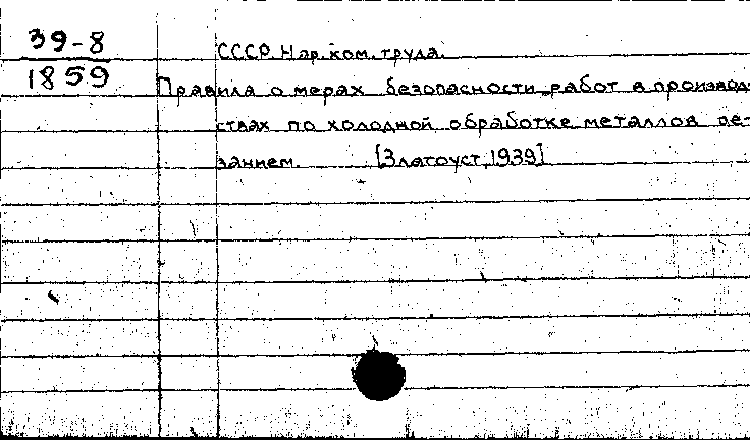 39-8
1859
СССР. Нар. ком. труда.
Правила о мерах безопасности работ в производ-
ствах по холодной обработке металлов ре-
занием. [Златоуст, 1939]